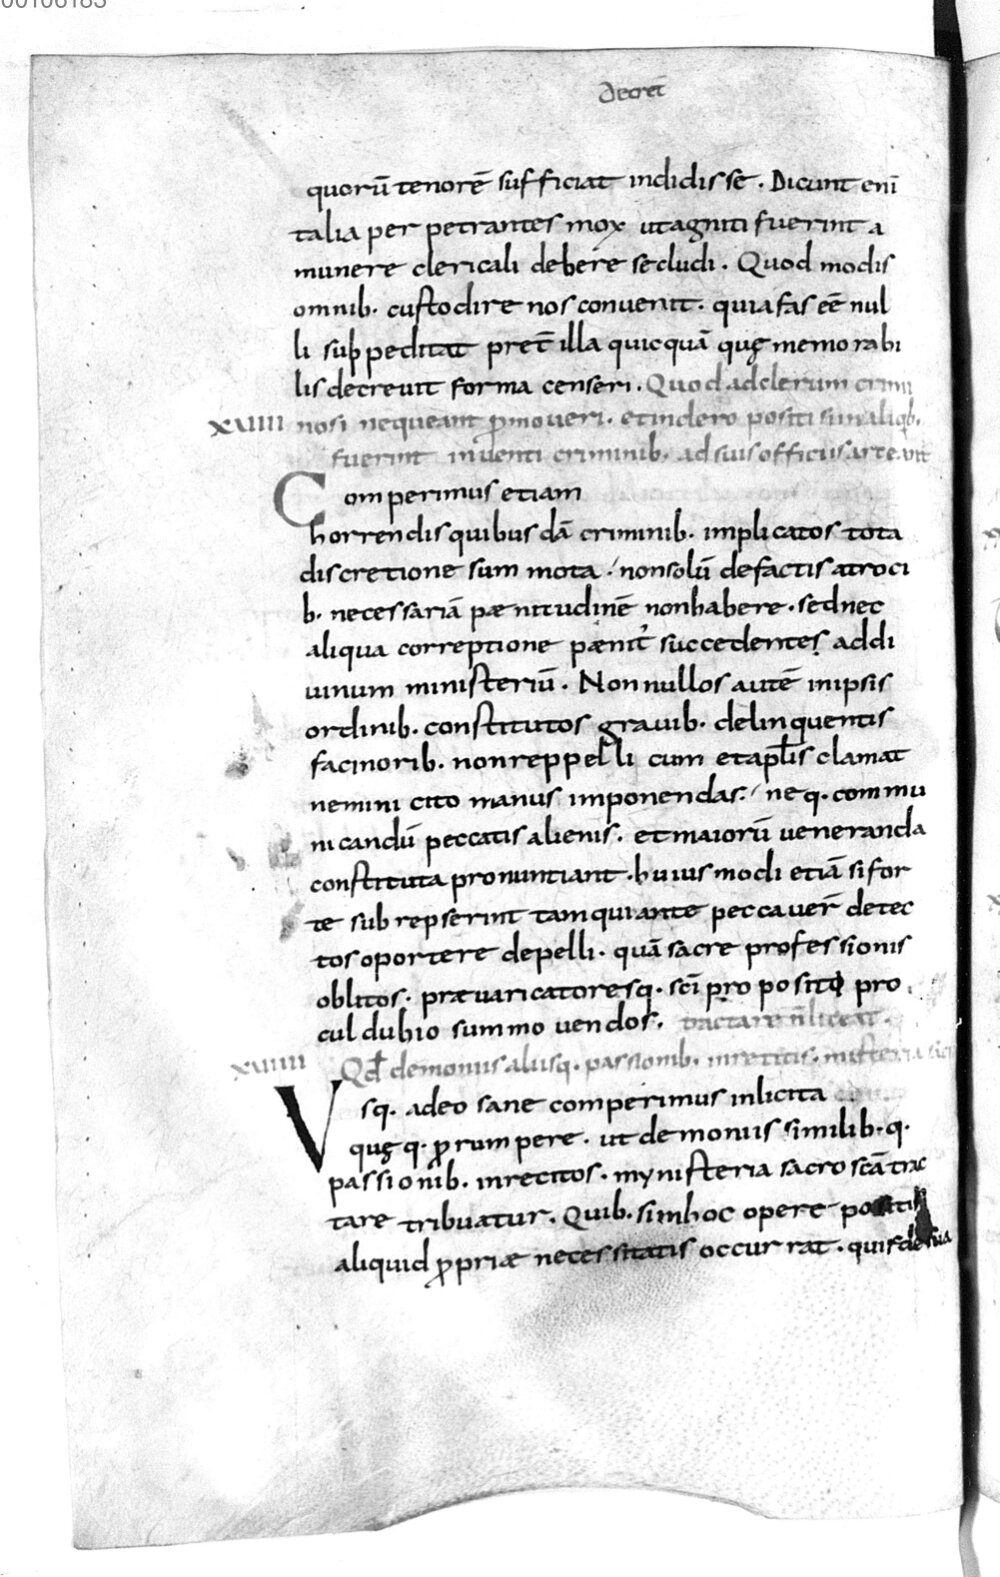 00106183
Decret̄
quorū tenorē sufficiat indidisse . Dicunt enī
talia perpetrantes mox ut agniti fuerint a
munere clericali debere secludi . Quod modis
omnib. custodire nos convenit . quia fas eē nul
li suppeditat pret̄ illa quicquā quę memorabi
lis decrevit forma censeri . Quod ad clerum crimi
XVIIII nosi nequeant ꝓmoveri . et in clero positi si in aliqb.
fuerint inventi criminib. ad suis officiis arceant̄
Comperimus etiam
horrendis quibusdā criminib. implicatos tota
discretione summota . non solū de factis atroci
b. necessariā pænitudinē non habere . sed nec
aliqua correptione pænit̄ succedentes ad di
uinum ministeriū . Non nullos autē in ipsis
ordinib. constitutos gravib. delinquentis
facinorib. non reppelli cum et apl̄is clamat
nemini cito manus imponendas . neq. commu
nicandū peccatis alienis . et maiorū veneranda
constituta pronuntiant . huius modi etiā si for
te subrepserint tam qui ante peccaver̄ detec
tos oportere depelli . quā sacre professionis
oblitos . prævaricatoresq. sc̄i proposito pro
cul dubio summovendos . tractare n̄ liceat .
XVIIIII Qd̄ demoniis aliisq. passionib. inretitis . misteria sacra
Vsq. adeo sane comperimus inlicita
quęq. ꝓrumpere . ut demoniis similib.q.
passionib. inrecitos . mynisteria sacro sc̄a trac
tare tribuatur . Quib. si in hoc opere positis
aliquid ꝓpriæ necessitatis occurrat . quis de sua